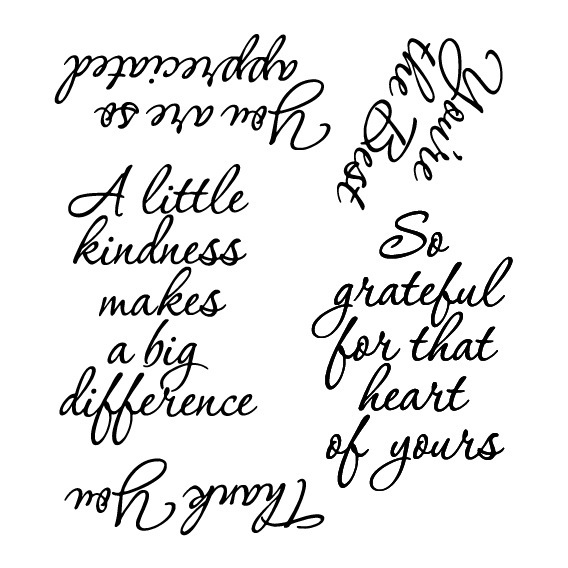 You are so
appreciated
You're
the Best
A little
kindness
makes
a big
difference
So
grateful
for that
heart
of yours
Thank You